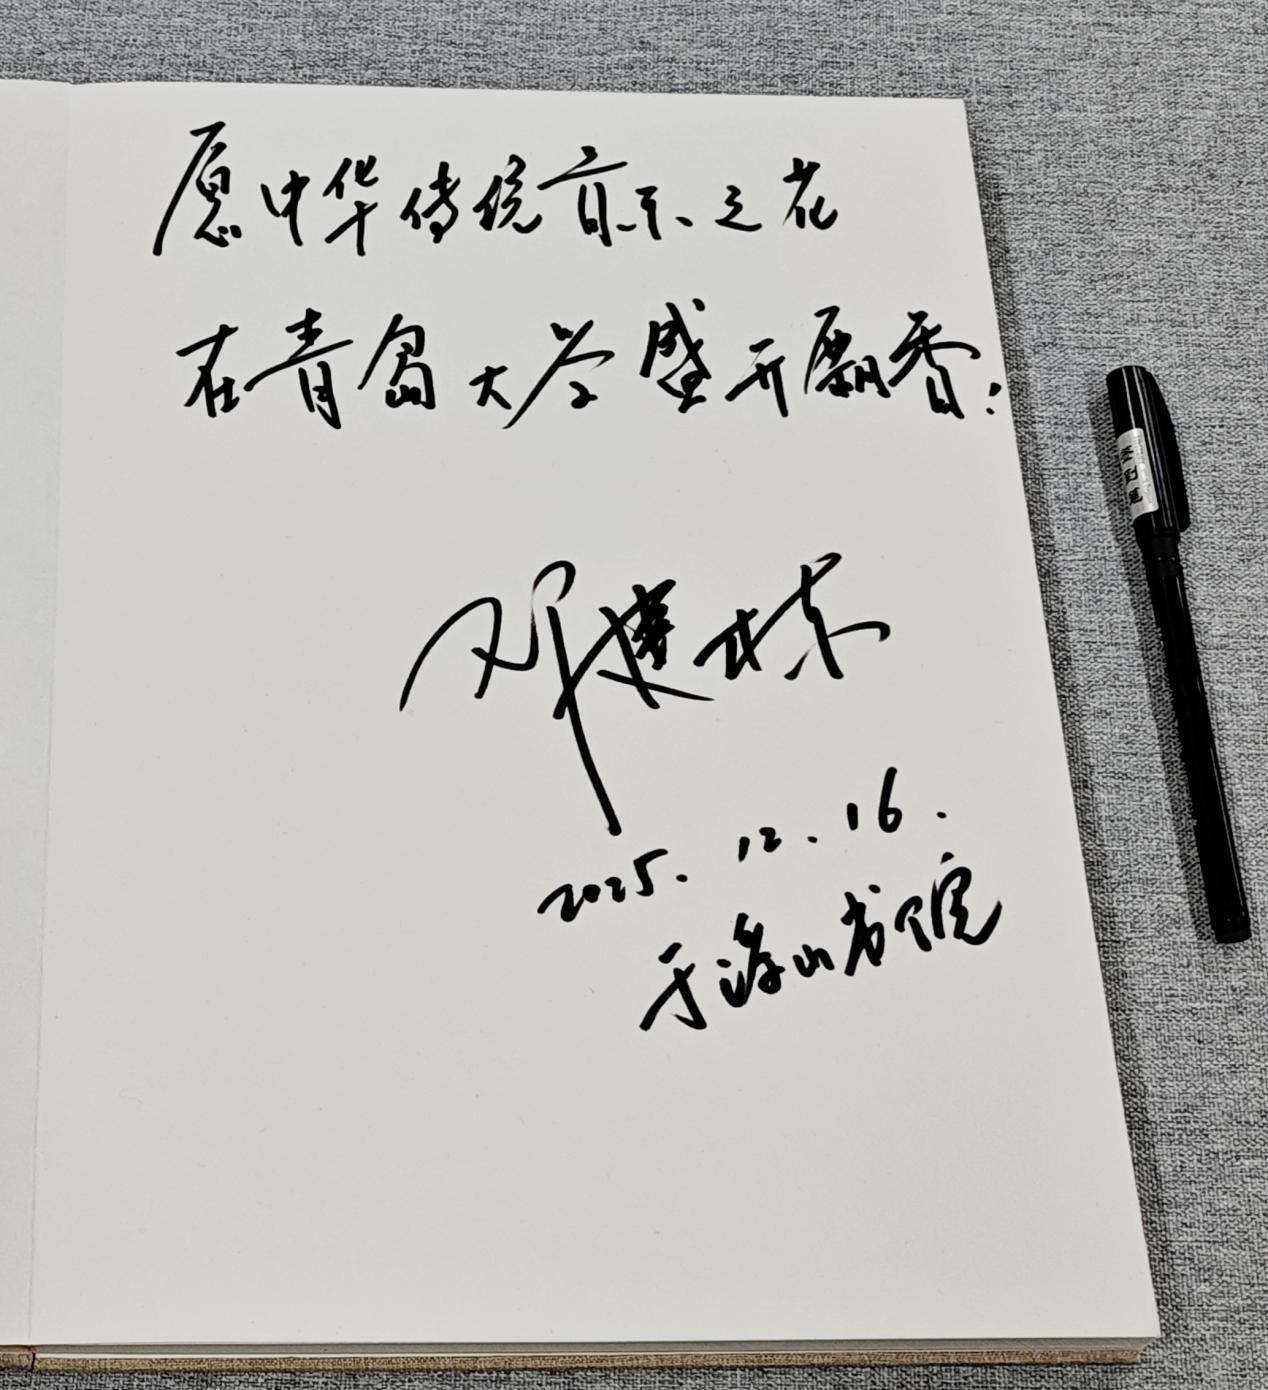 愿中华传统音乐之花
在青岛大学盛开飘香！
邓建栋
2025.12.16.
于浮山书院
签到笔